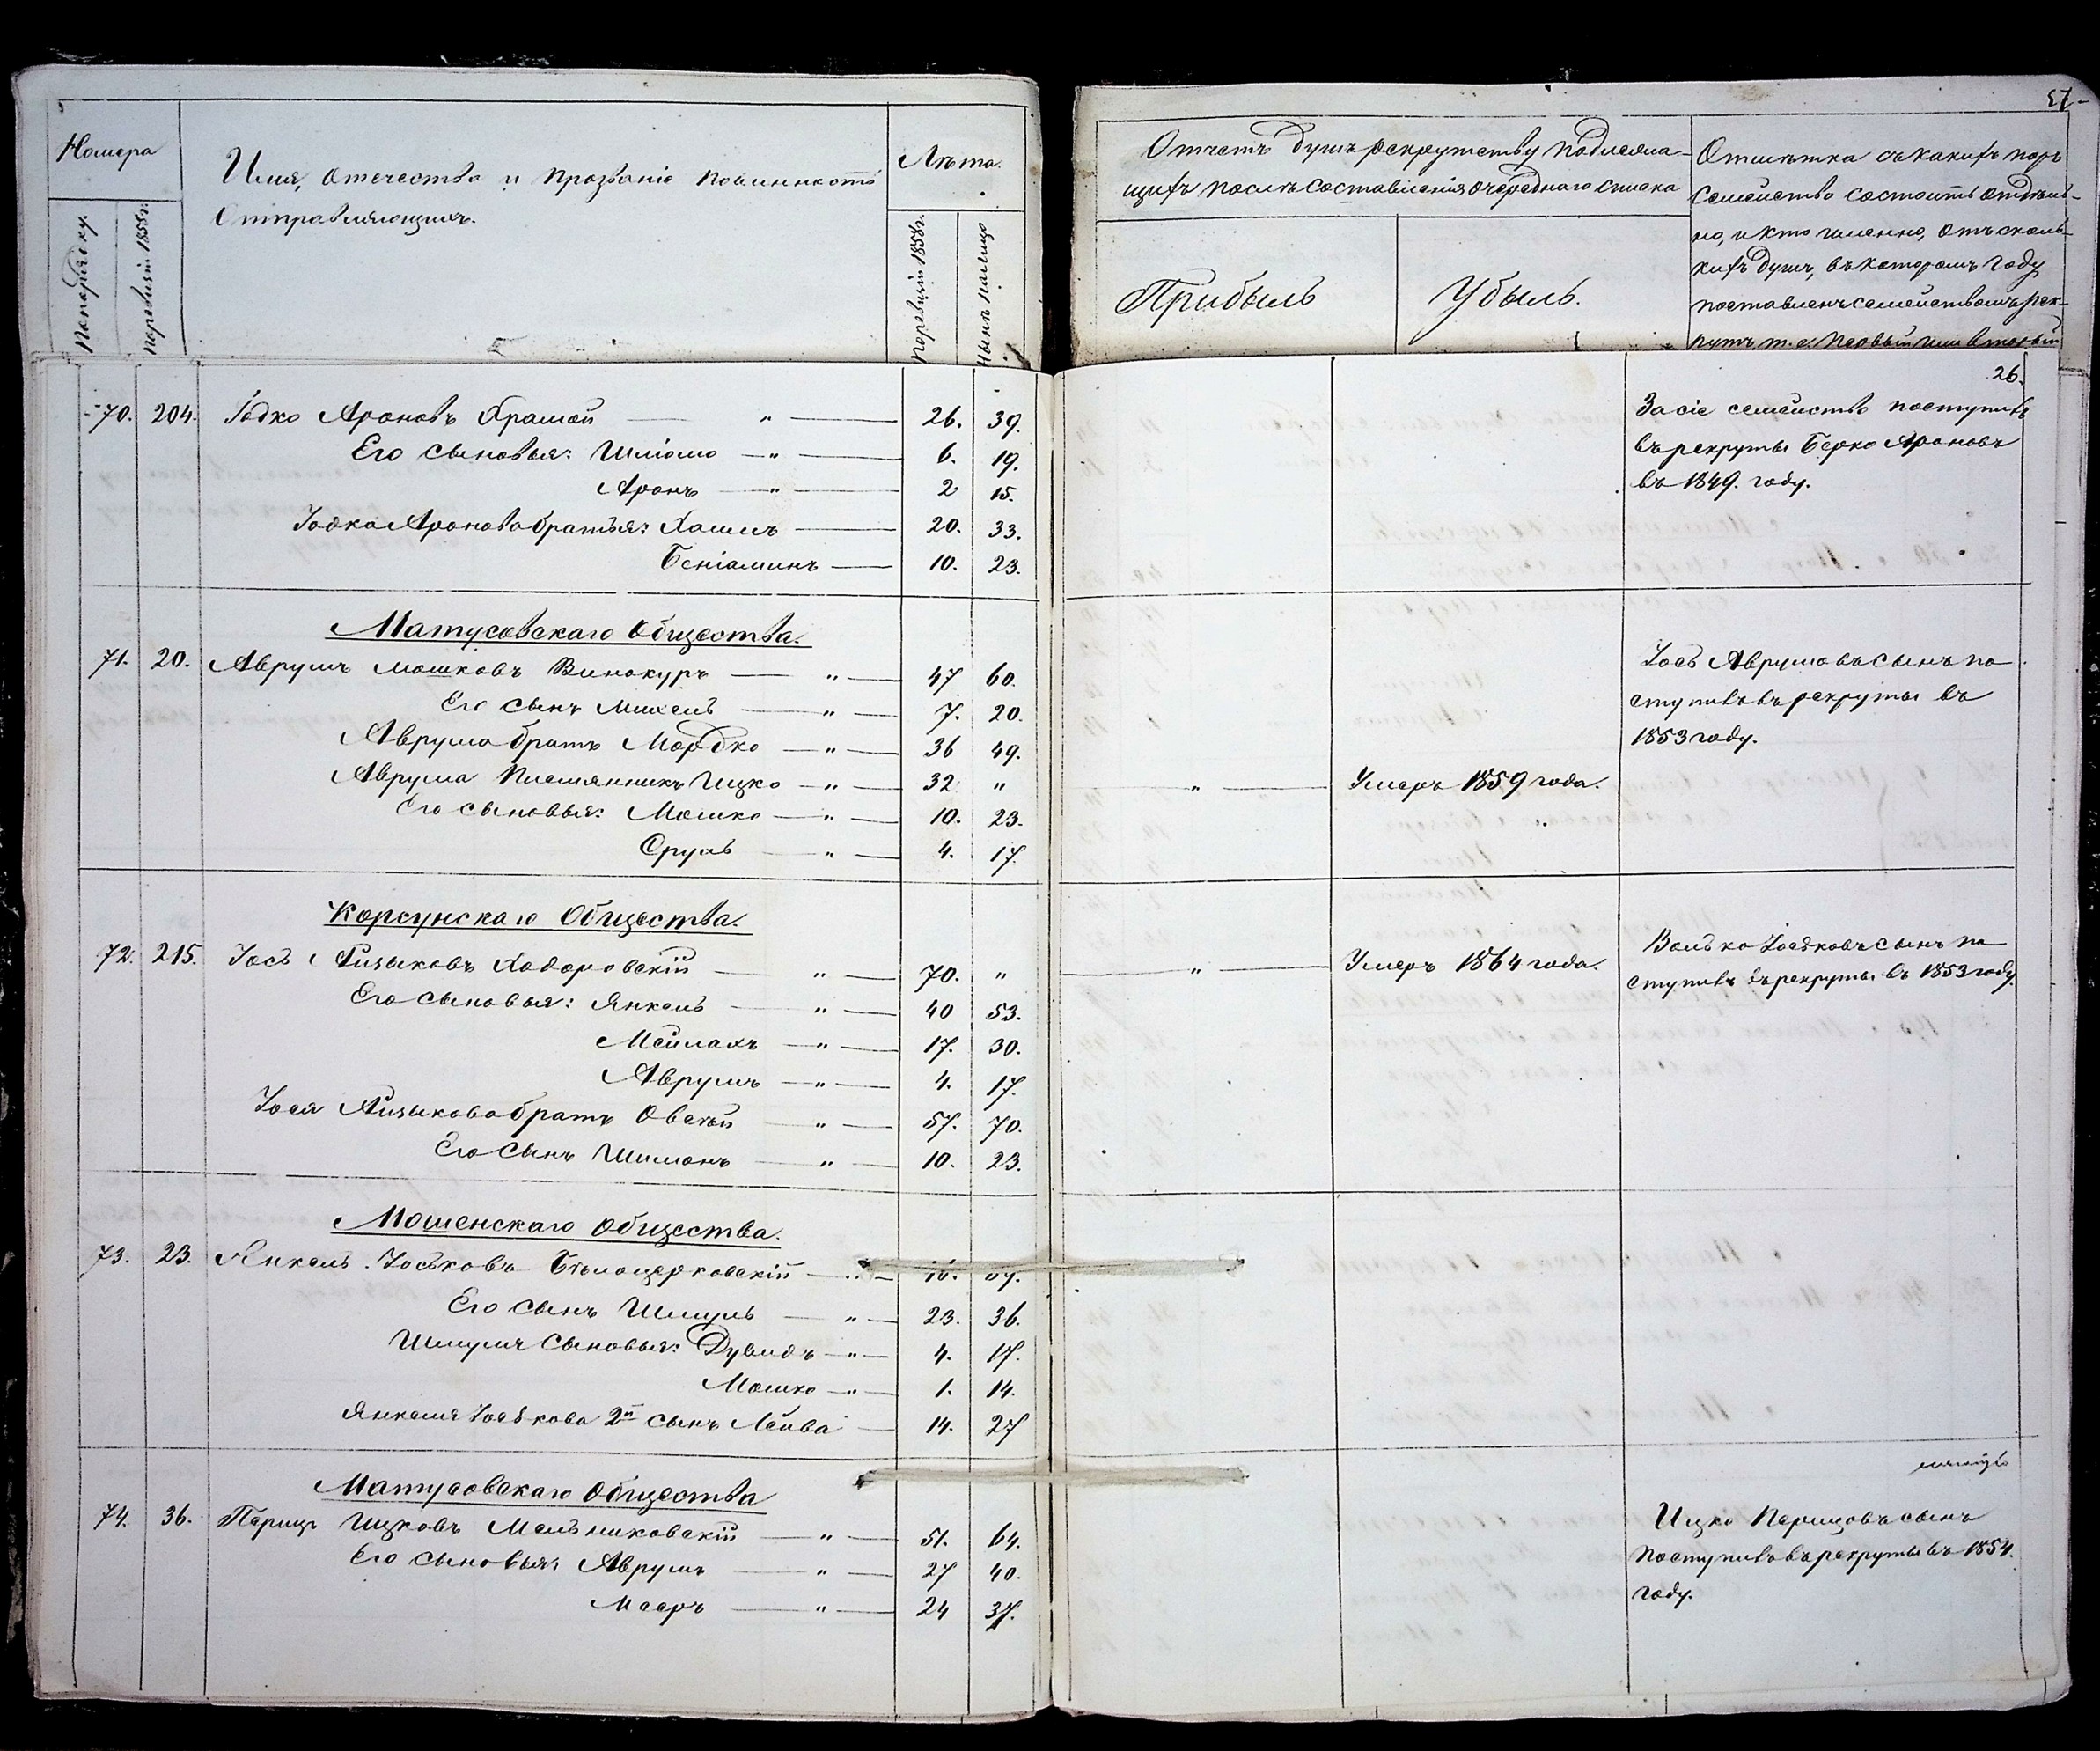 Номера
Имя, отечество и прозваніе повинность
Отправляющихъ.
Лѣта.
По порядку.
По ревизіи 1858 г.
По ревизіи 1858 г.
Нынѣ на лицо
70. 204. Іодко Ароновъ Храмой — „ — 26. 39.
Его сыновья: Шліомо — „ — 6. 19.
Аронъ — „ — 2 15.
Іодка Аронова братья: Хаимъ — 20. 33.
Беніаминъ — 10. 23.
Матусовскаго Общества.
71. 20. Аврумъ Мошковъ Винокуръ — „ — 47 60.
Его сынъ Михель — „ — 7. 20.
Аврума братъ Мордко — „ — 36 49.
Аврума племянникъ Ицко — „ — 32 „
Его сыновья: Мошко — „ — 10. 23.
Сруль — „ — 4. 17.
Корсунскаго Общества.
72. 215. Іось Айзиковъ Ходоровскій — „ — 70. „
Его сыновья: Янкель — „ — 40 53.
Мейлахъ — „ — 17. 30.
Аврумъ — „ — 4. 17.
Іося Айзикова братъ Овсѣй — „ — 57. 70.
Его сынъ Шимонъ — „ — 10. 23.
Мошенскаго Общества.
73. 23. Янкель Іоськовъ Бѣлоцерковскій
Его сынъ Шмуль — „ — 23. 36.
Шмуля сыновья: Дувидъ — „ — 4. 17.
Мошко — „ — 1. 14.
Янкеля Іоськова 2й сынъ Лейва — 14. 27
Матусовскаго Общества
74. 36. Перицъ Ицковъ Мельниковскій — „ — 51. 64.
Его сыновья: Аврумъ — „ — 27 40.
Мееръ — „ — 24 37.
Отчетъ душъ рекрутству подлежа-
щихъ послѣ составленія очереднаго списка
Прибыль
Убыль.
Отмѣтка съ какихъ поръ
семейство состоитъ отдѣль-
но, и кто именно, отъ сколь-
кихъ душъ, въ которомъ году
поставленъ семействомъ рек-
рутъ т. е. первый или вторый
26.
За сіе семейство поступилъ
въ рекруты Берко Ароновъ
въ 1849. году.
Іось Аврумовъ сынъ по
ступилъ въ рекруты въ
1853 году.
— „ — Умеръ 1859 года.
— „ — Умеръ 1864 года.
Волько Іоськовъ сынъ по
ступилъ въ рекруты въ 1853 году.
Ицко Перицовъ сынъ
поступилъ въ рекруты въ 1854.
году.